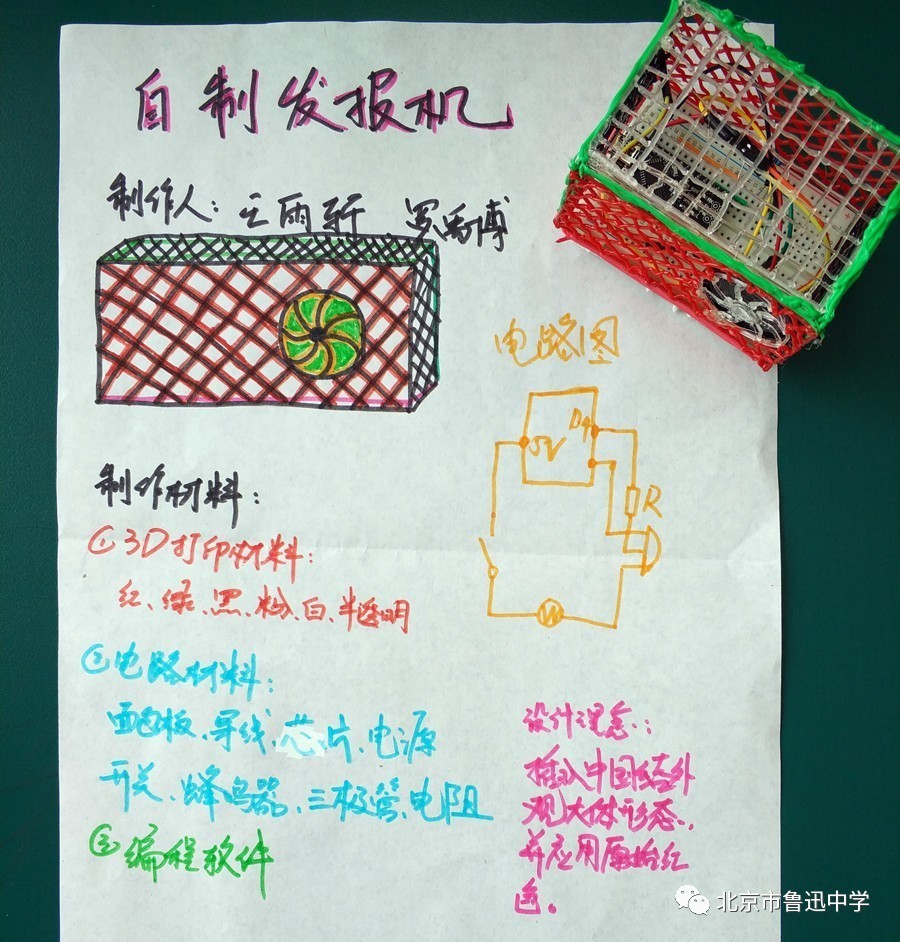 自制发报机
制作人：王雨轩 罗禹博
电路图
5V
D4
R
制作材料：
①3D打印材料：
红、绿、黑、粉、白、半透明
②电路材料：
面包板、导线、芯片、电源
开关、蜂鸣器、三极管、电阻
③编程软件
设计理念：
插入中国结外
观大体形态，
并应用原始红
色。
北京市鲁迅中学